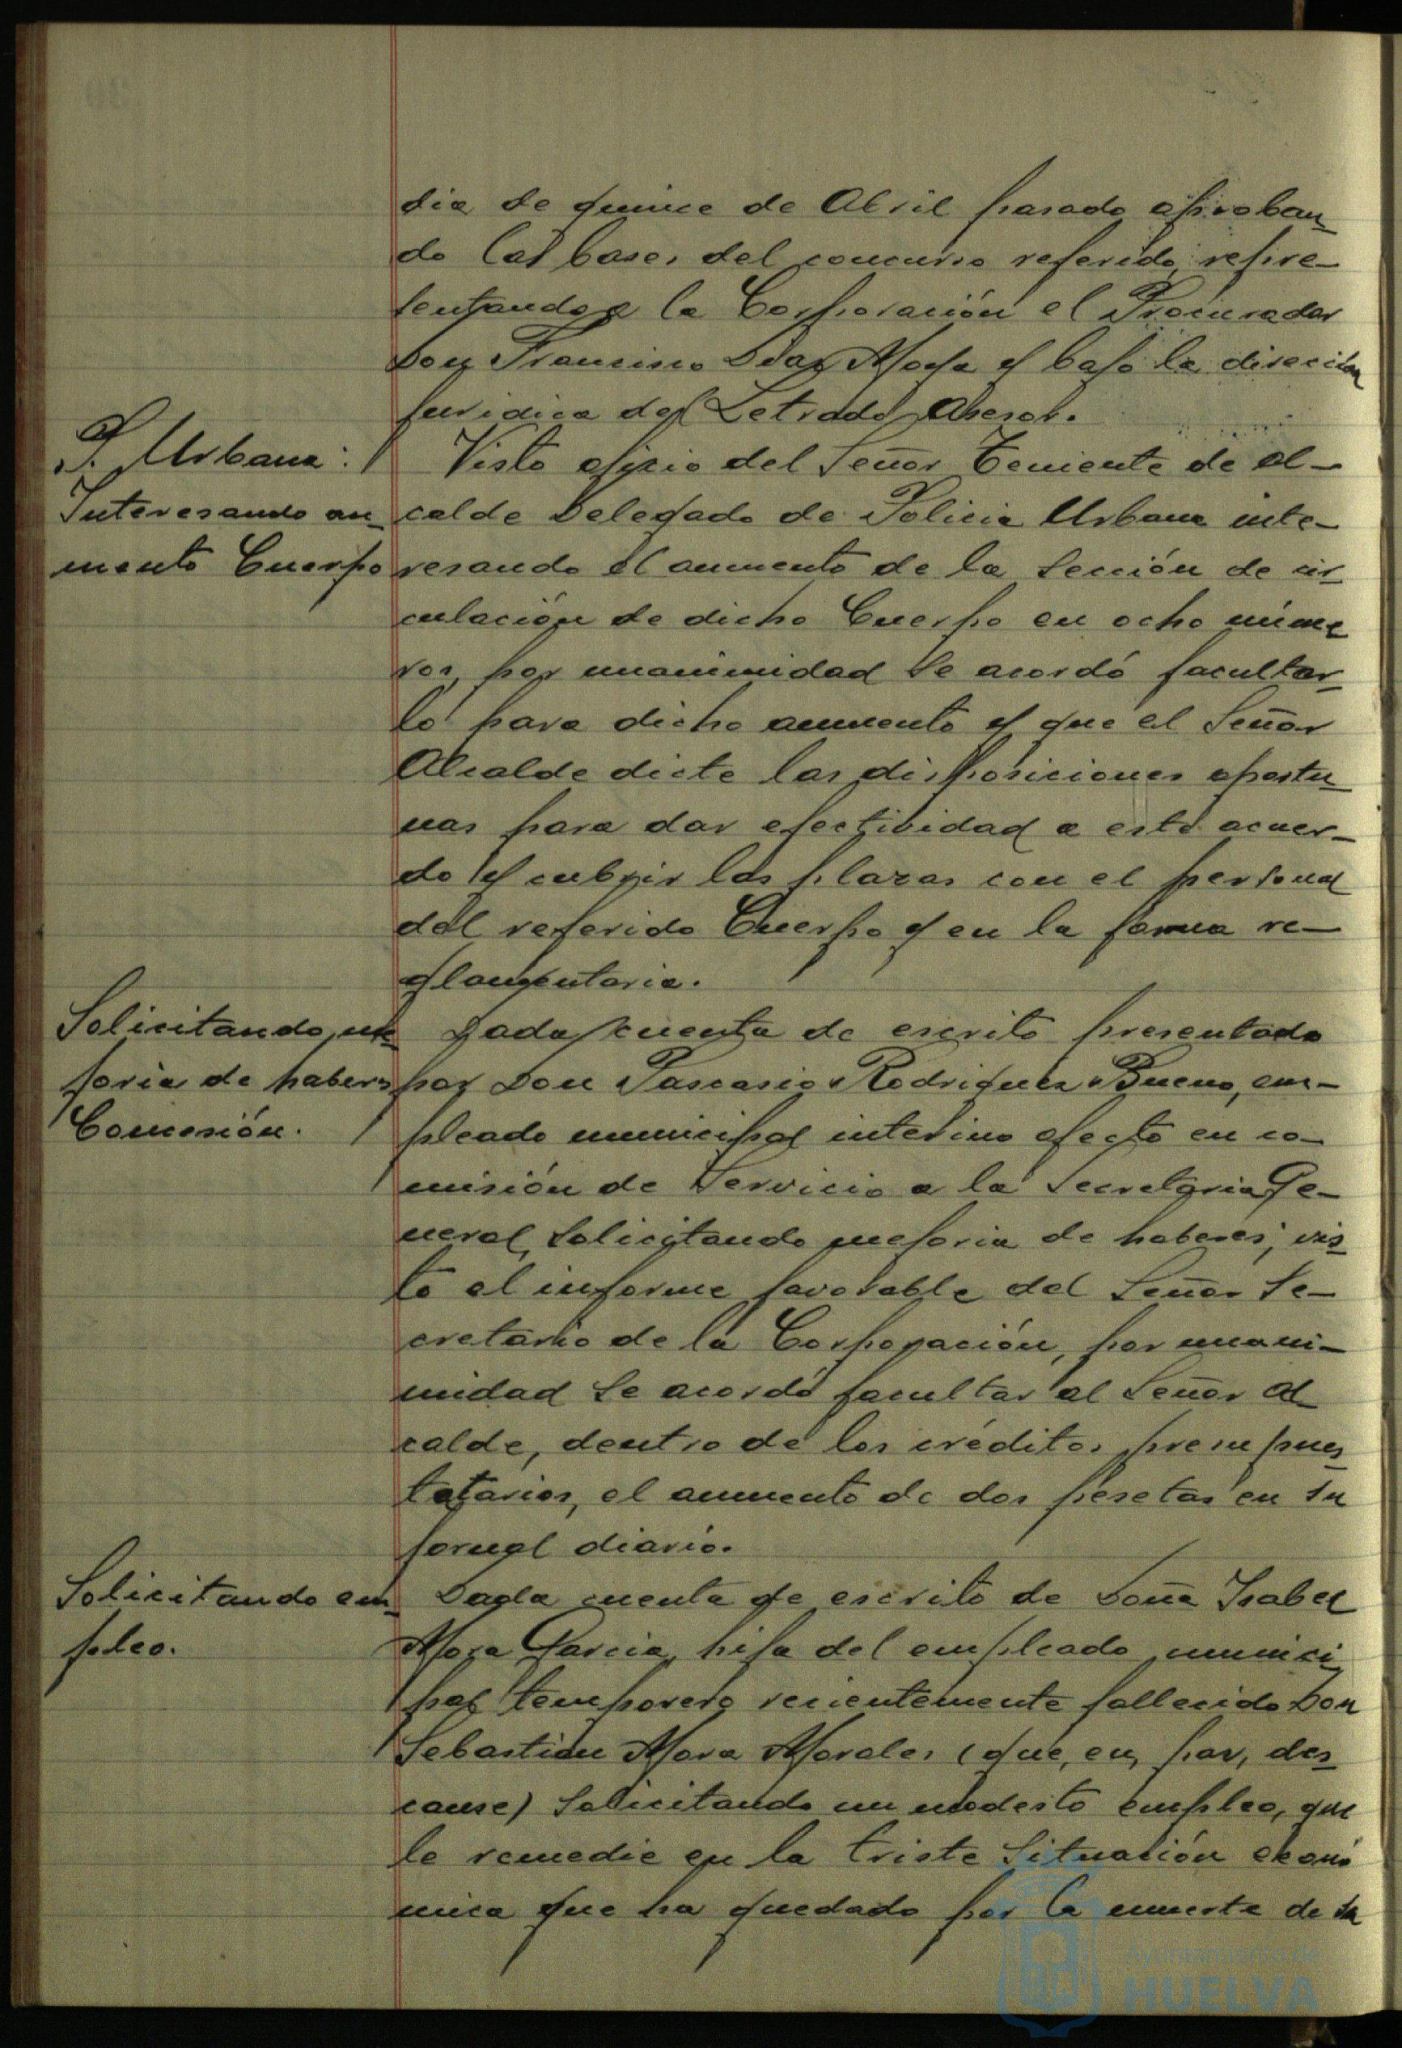 dia de quince de Abril pasado aproban-
do las bases del concurso referido, repre-
sentando a la Corporación el Procurador
Don Francisco Diaz Moya y bajo la dirección
juridica del Letrado Asesor.
P. Urbana:
Interesando au-
mento Cuerpo
Visto oficio del Señor Teniente de al-
calde Delegado de Policia Urbana inte-
resando el aumento de la Sección de cir-
culación de dicho Cuerpo en ocho núme-
ros, por unanimidad se acordó facultar-
lo para dicho aumento y que el Señor
Alcalde dicte las disposiciones oportu-
nas para dar efectividad a este acuer-
do y cubrir las plazas con el personal
del referido Cuerpo y en la forma re-
glamentaria.
Solicitando me-
joria de haberes
Comisión.
Dada cuenta de escrito presentado
por Don Pascasio Rodriguez Bueno, em-
pleado municipal interino afecto en co-
misión de Servicio a la Secretaria Ge-
neral, solicitando mejoria de haberes; vis-
to el informe favorable del Señor Se-
cretario de la Corporación, por unani-
midad se acordó facultar al Señor Al-
calde, dentro de los créditos presupues-
tatarios, el aumento de dos pesetas en su
jornal diario.
Solicitando em-
pleo.
Dada cuenta de escrito de Doña Isabel
Mora Garcia, hija del empleado munici-
pal temporero recientemente fallecido Don
Sebastián Mora Morales (que, en, paz, des-
canse) solicitando un modesto empleo, que
le remedie en la triste situación econó-
mica que ha quedado por la muerte de su
Ayuntamiento de
HUELVA